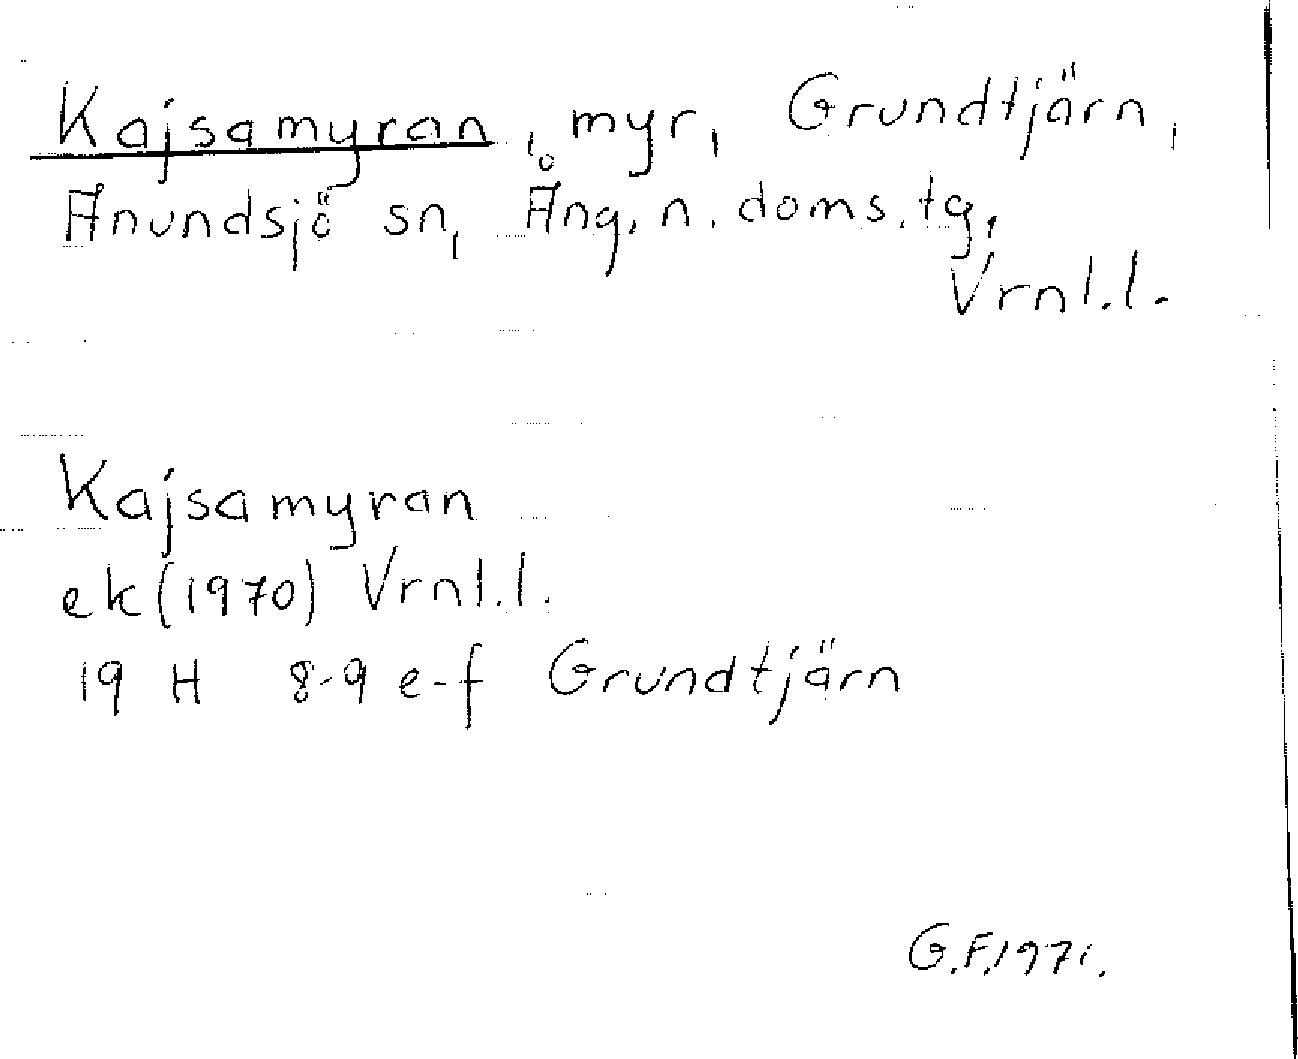 Kajsamyran, myr, Grundtjärn,
Anundsjö sn, Ång. n. doms. tg,
Vrnl.l.
Kajsamyran
ek (1970) Vrnl.l.
19 H 8-9 e-f Grundtjärn
G.F. 1971.